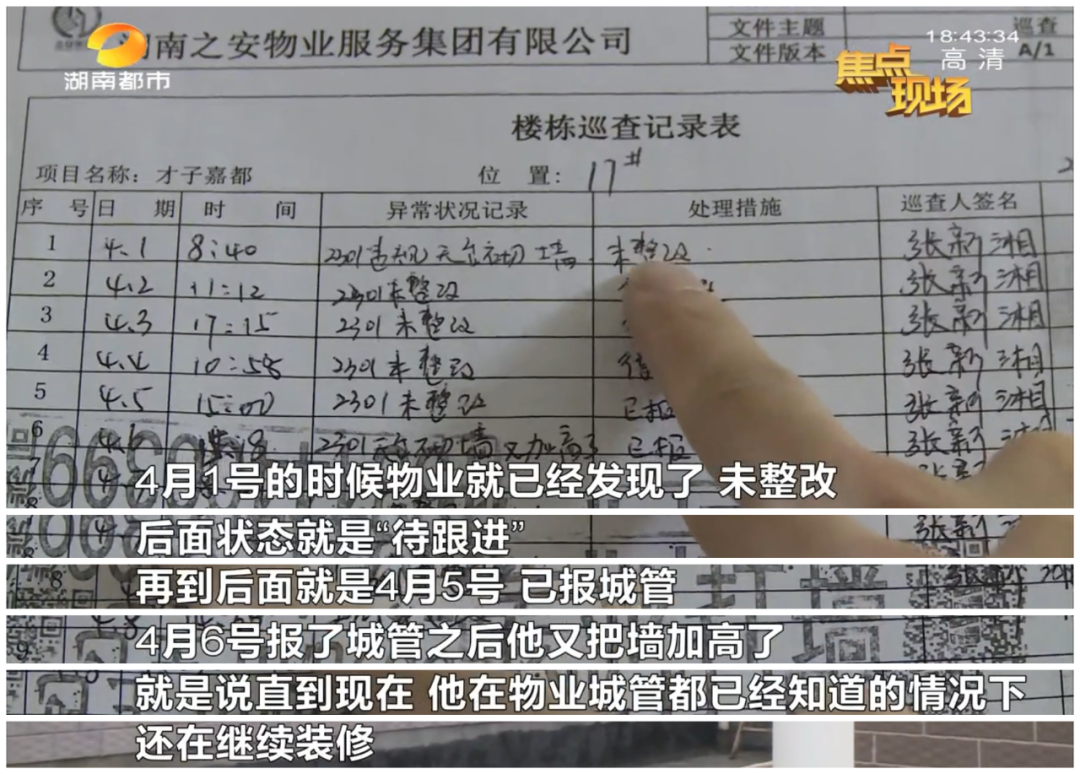 湖南都市
湖南之安物业服务集团有限公司
文件主题 巡查
文件版本 A/1
18:43:34
高清
焦点
现场
楼栋巡查记录表
项目名称：才子嘉都 位 置：17#
序 号 日 期 时 间 异常状况记录 处理措施 巡查人签名
1 4.1 8:40 2301违规天台砌墙. 未整改. 张新湘
2 4.2 11:12 2301未整改 张新湘
3 4.3 17:15 2301未整改 张新湘
4 4.4 10:58 2301未整改 待 张新湘
5 4.5 15:00 2301未整改 已报 张新湘
6 4.6 2301天台砌墙又加高了 已报 张新湘
7
4月1号的时候物业就已经发现了 未整改
后面状态就是“待跟进”
再到后面就是4月5号 已报城管
4月6号报了城管之后他又把墙加高了
就是说直到现在 他在物业城管都已经知道的情况下
还在继续装修